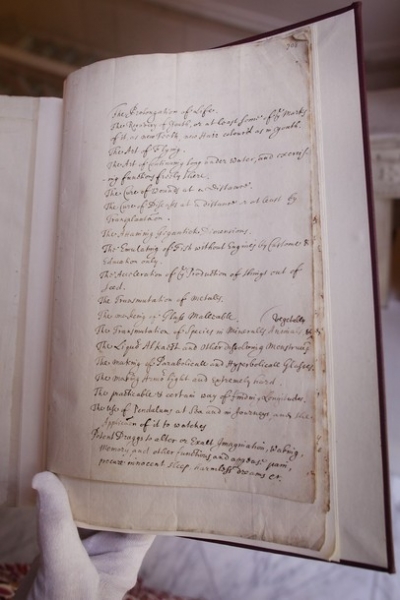 The Prolongation of Life.
The Recovery of Youth, or at least some of ye Marks
of it, as new Teeth, new Hair colour'd as in youth.
The Art of Flying.
The Art of Continuing long under water, and exercising
functions freely there.
The Cure of Wounds at a Distance.
The Cure of Diseases at a distance or at least by
Transplantation.
The Attaining Gigantick Dimensions.
The Emulating of Fish without Engines by Custome &
Education only.
The Acceleration of ye Production of things out of
Seed.
The Transmutation of Metalls.
The makeing of Glass Malleable.
(Vegetables
The Transmutation of Species in Mineralls, Animals, &
The Liquid Alkaest and Other dissolving Menstruums
The making of Parabolicall and Hyperbolicall Glasses
The making Armor light and extremely hard.
The practicable & certain way of finding Longitudes.
The use of Pendulums at Sea and in Journeys, and the
Application of it to watches
Potent Druggs to alter or Exalt Imagination, Waking,
Memory, and other functions, and appease pain,
procure innocent sleep, harmless dreams, &c.